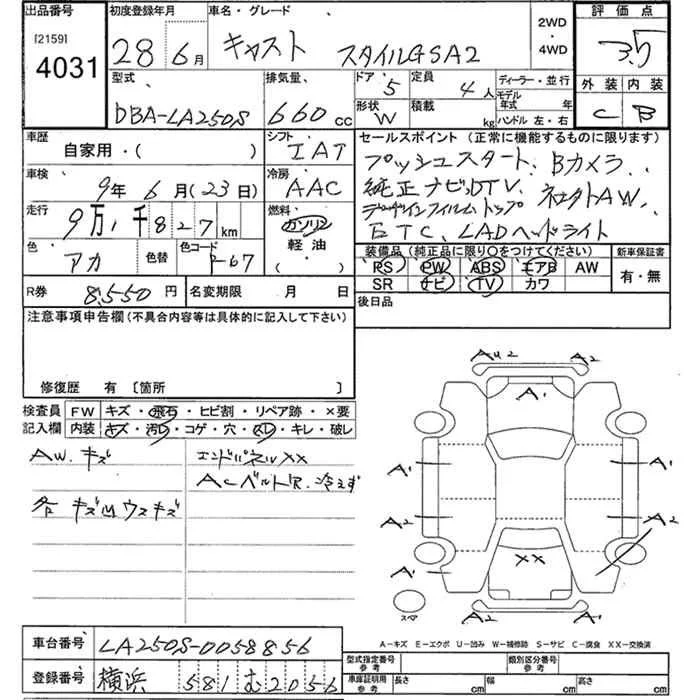 出品番号 初度登録年月 車名・グレード 2WD・4WD 評価点
[2159]
4031 28年6月 キャスト スタイルGSA2 3.5
型式 排気量 ドア 5 定員 4人 ディーラー・並行 外装 内装
DBA-LA250S 660cc 形状 W 積載 kg モデル年式 年 ハンドル 左・右 C B
車歴 シフト セールスポイント(正常に機能するものに限ります)
自家用・( ) IAT プッシュスタート、Bカメラ、
車検 冷房 純正ナビ、DTV、
9年6月(23日) AAC
走行 燃料
9万1千827km ガソリン ETC、LADヘッドライト
色 色替 色コード 軽油 装備品(純正品に限り○をつけてください) 新車保証書
アカ R67 ( ) PS PW ABS エアB AW 有・無
SR ナビ TV カワ
R券 8,550円 名変期限 月 日 後日品
注意事項申告欄(不具合内容等は具体的に記入して下さい)
修復歴 有〔箇所 〕
検査員 FW キズ・飛石・ヒビ割・リペア跡・×要
記入欄 内装 キズ・汚レ・コゲ・穴・スレ・キレ・破レ
AW.キズ エンドパネルXX
ACベルト 冷えず
各 キズ凹ウスキズ
AU2 A2
A1
A1 A1
A2 A2
XX
A1 A1
A2
スペア
A-キズ E-エクボ U-凹み W-補修跡 S-サビ C-腐食 XX-交換済
車台番号 LA250S-0058856
登録番号 横浜 581 む 2056
型式指定番号 参考 類別区分番号 参考
車庫証明用 参考 長さ cm 幅 cm 高さ cm